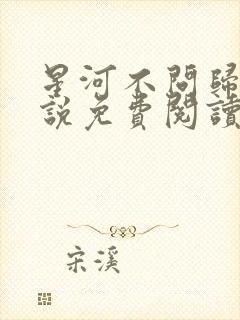 星河不問歸
說免費閱讀
宋溪